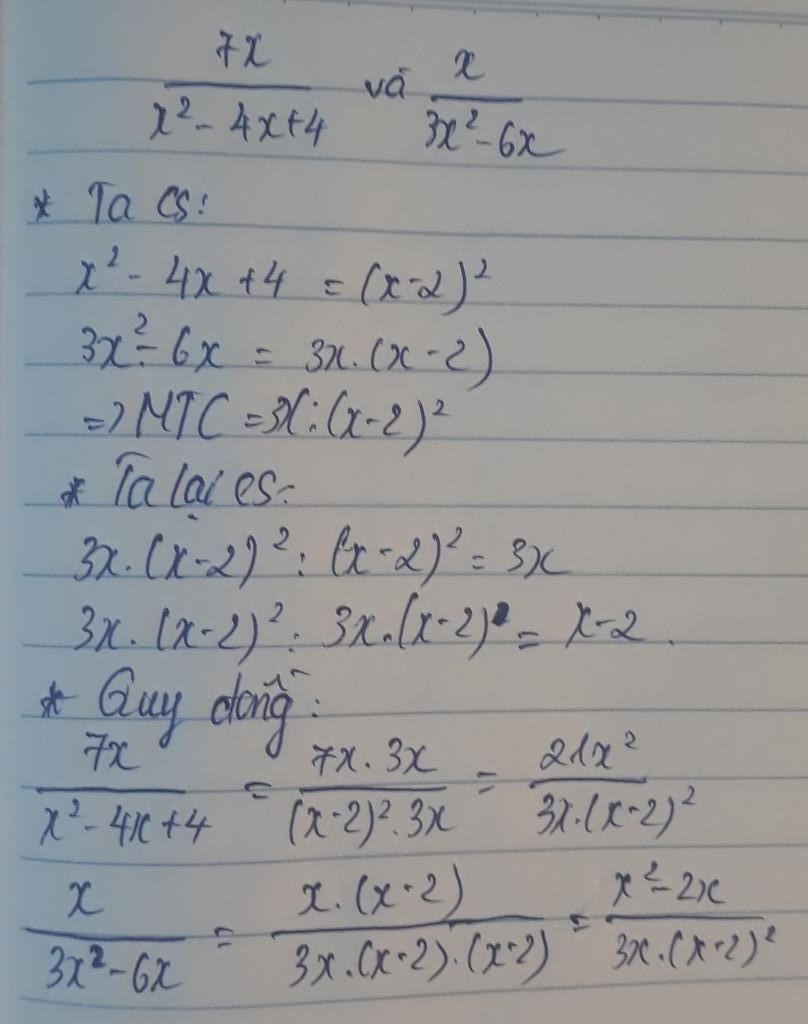 7x/(x² - 4x+4) và x/(3x² - 6x)
* Ta có:
x² - 4x + 4 = (x-2)²
3x² - 6x = 3x.(x-2)
=> MTC = 3x.(x-2)²
* Ta lại có:
3x.(x-2)² : (x-2)² = 3x
3x.(x-2)² : 3x.(x-2) = x-2.
* Quy đồng:
7x/(x² - 4x+4) = 7x.3x/((x-2)².3x) = 21x²/(3x.(x-2)²)
x/(3x² - 6x) = x.(x-2)/(3x.(x-2).(x-2)) = (x² - 2x)/(3x.(x-2)²)